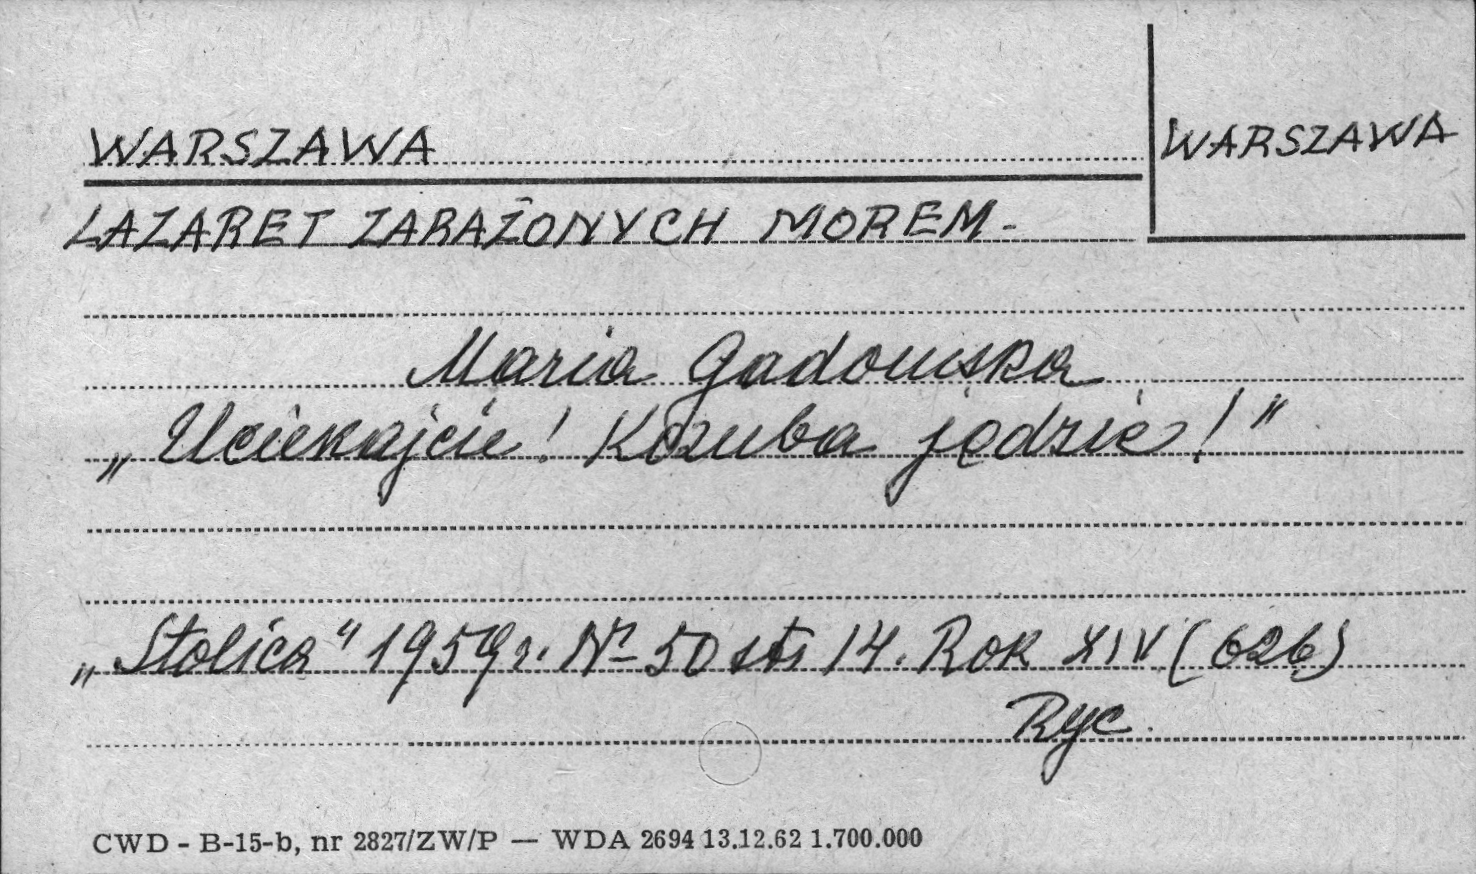 WARSZAWA
WARSZAWA
LAZARET ZARAŻONYCH MOREM-
Maria Gadomska
„Uciekajcie! Kozuba jędzie!"
„Stolica" 1959 r. Nr 50 str 14. Rok XIV (626)
Ryc.
CWD - B-15-b, nr 2827/ZW/P — WDA 2694 13.12.62 1.700.000